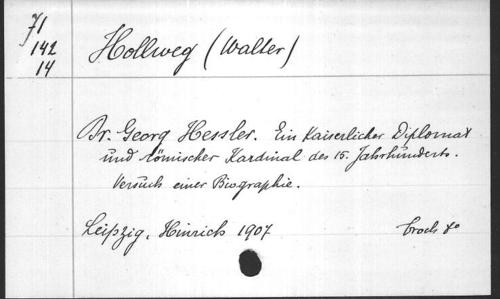 71
142
14
Hollweg (Walter)
Dr. Georg Hessler. Ein Kaiserlicher Diplomat
und römischer Kardinal des 15. Jahrhunderts.
Versuch einer Biographie.
Leipzig, Hinrich 1907
broch 8°